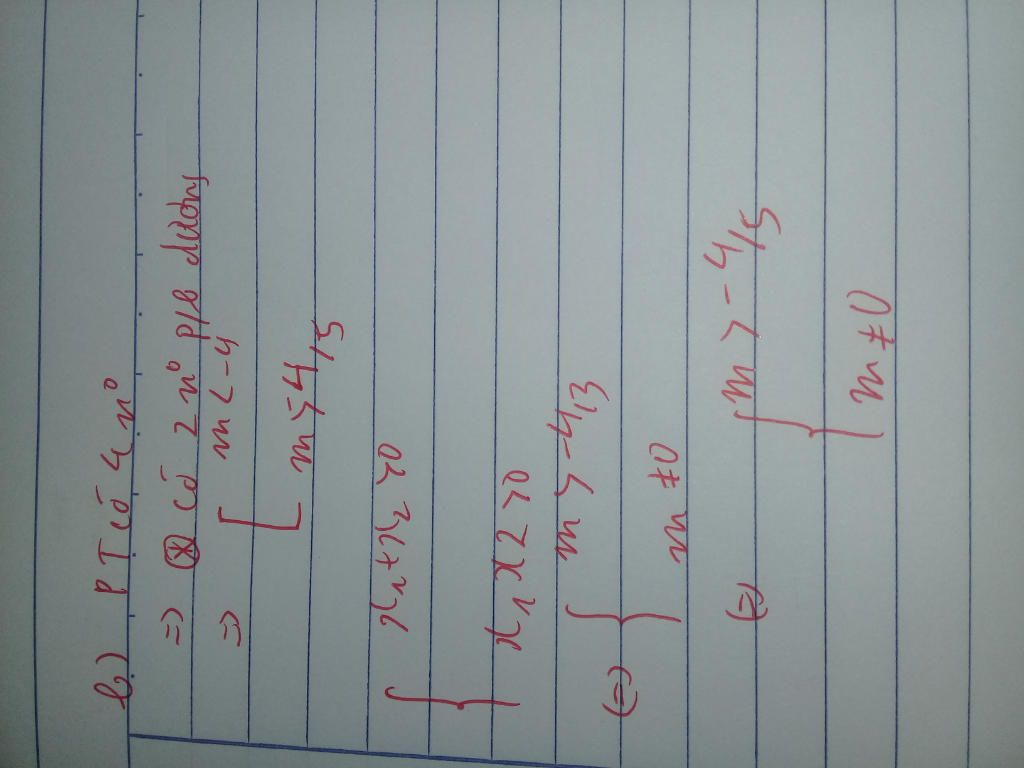 b) PT có 4 n⁰
=> ⊛ có 2 n⁰ p/b dương
=> [ m < -4
m > -4/5
{ x₁ + x₂ > 0
x₁ x 2 > 0
(=) { m > -4/3
m ≠ 0
(=) { m > -4/5
m ≠ 0